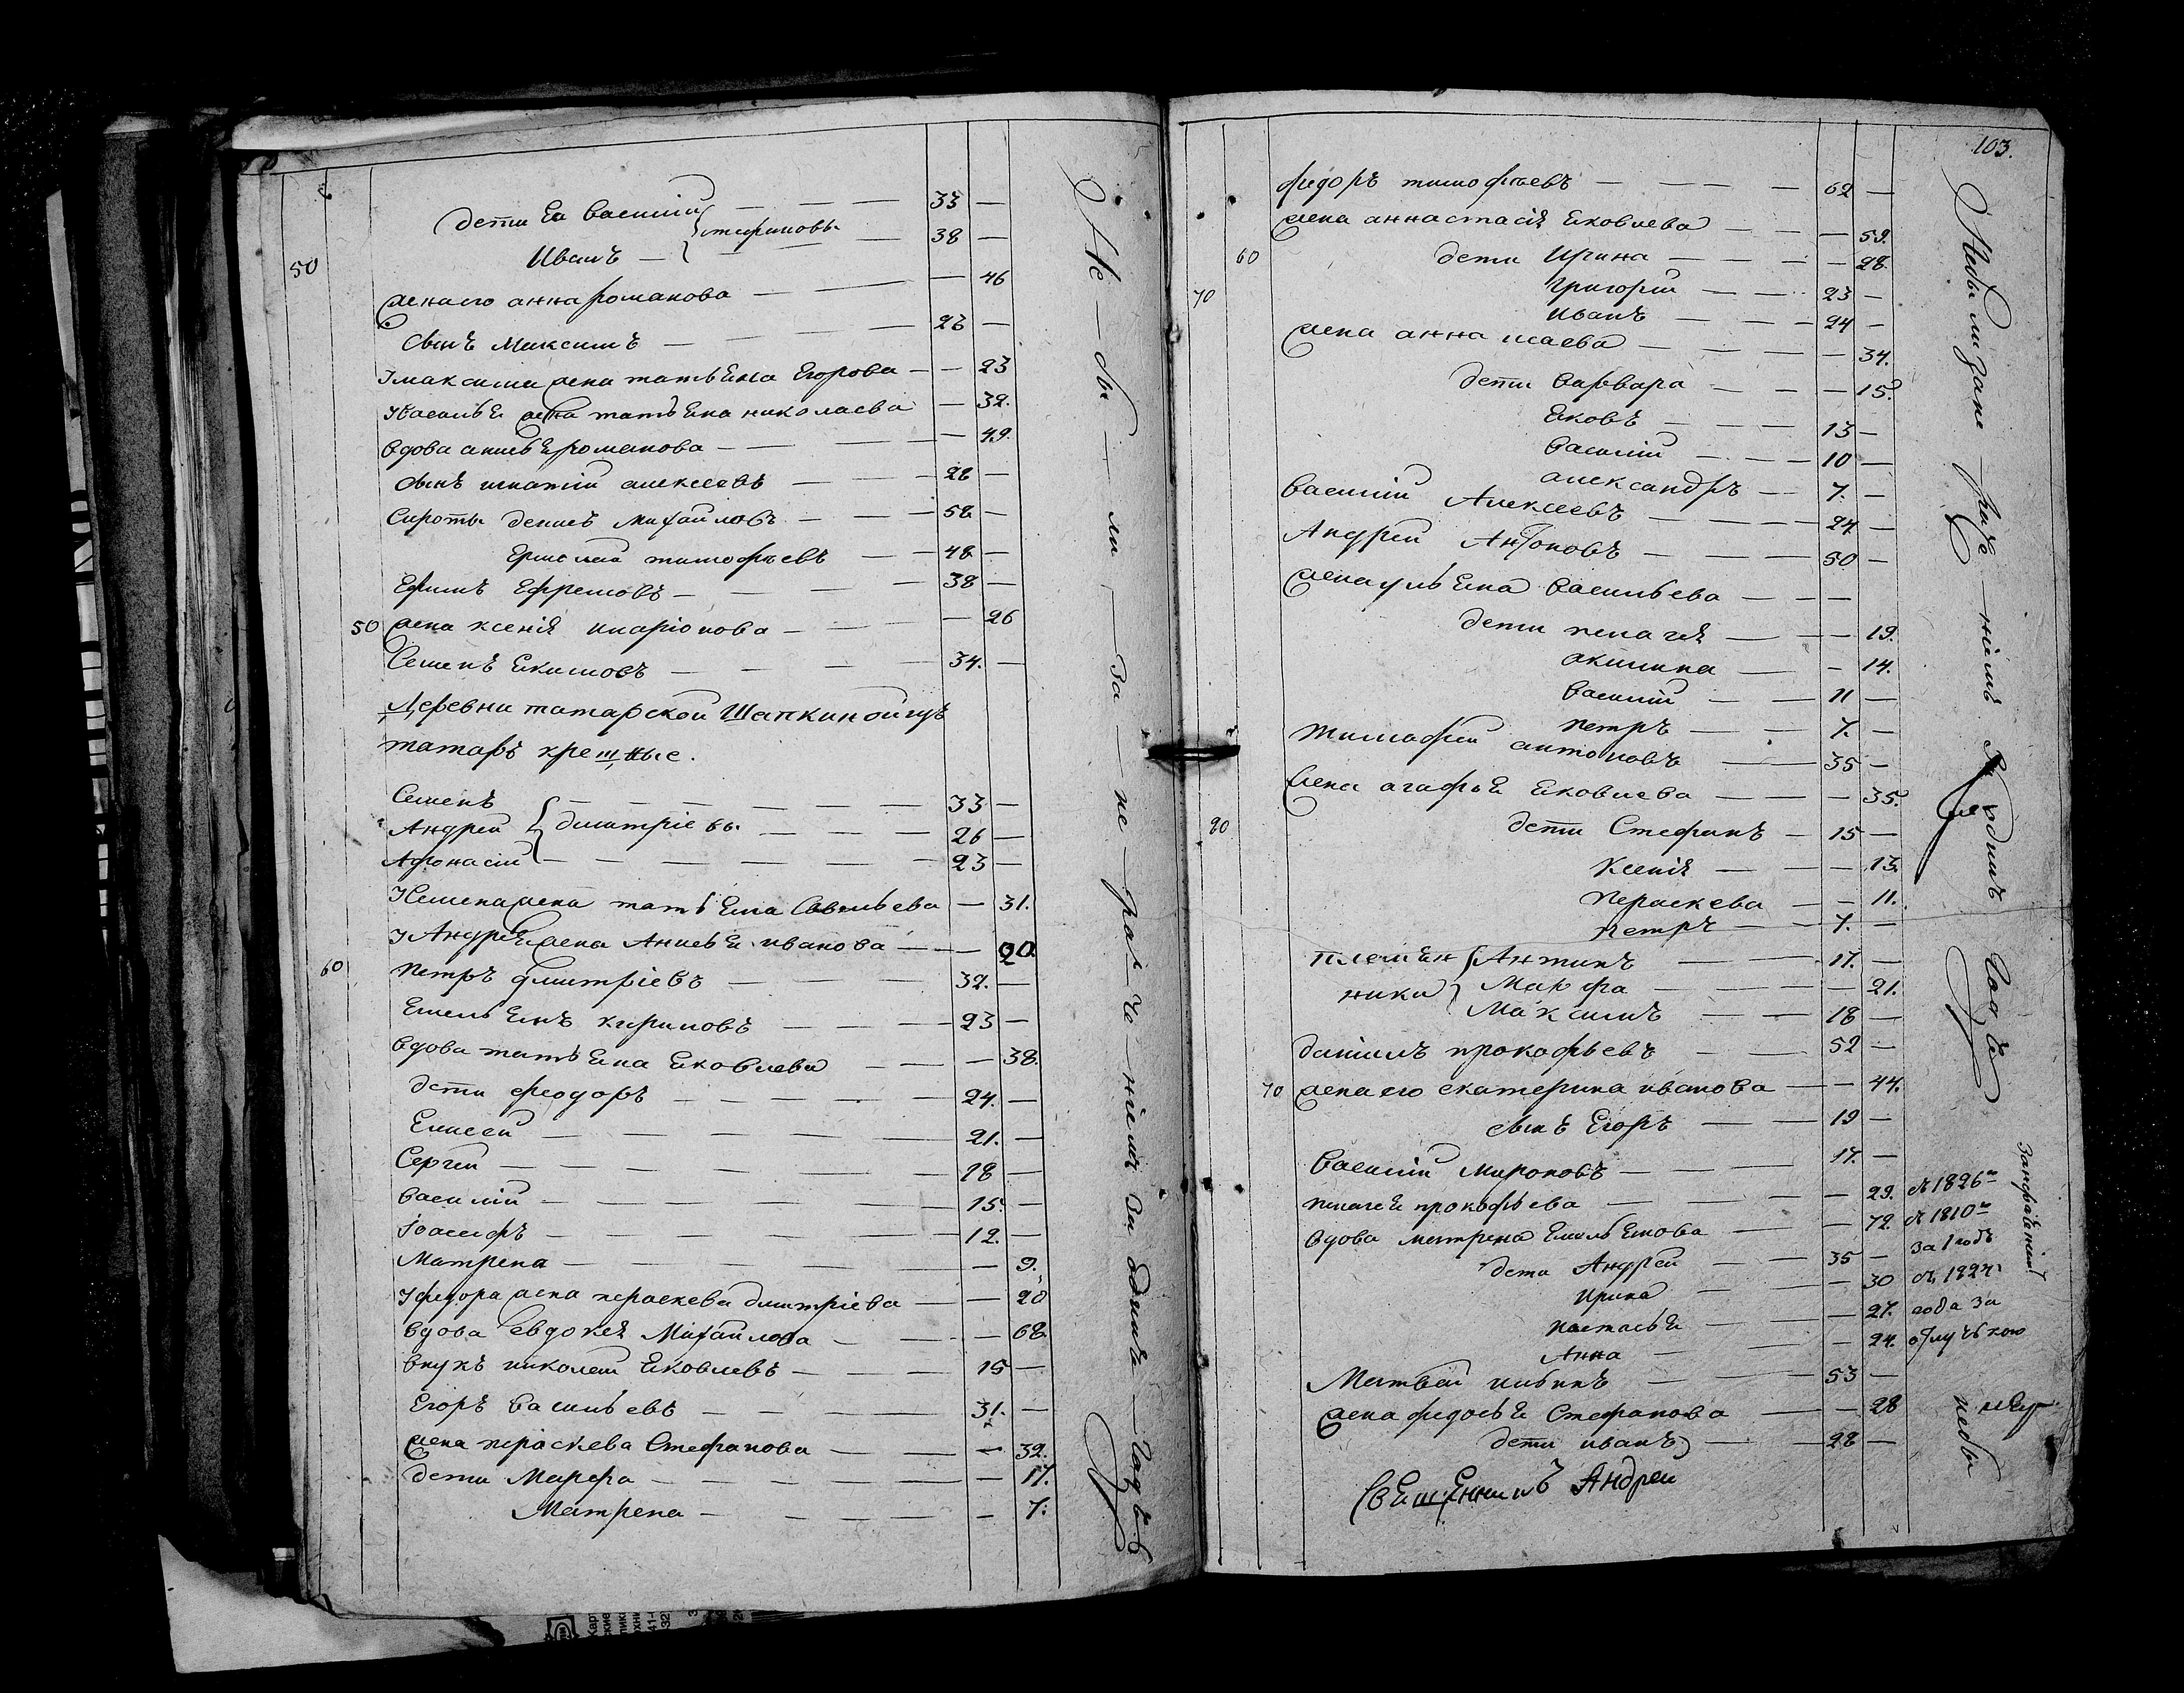 дети Ея Василий — — — 33 —
стефановы
50 Иванъ — — — 38 —
жена его анна романова — — — 46
сынъ Максимъ — — — 23 —
У максима жена татьяна Егорова — — 23
У Василья жена татьяна николаева — 32.
вдова анисья романова — — — 49.
сынъ игнатий алексеевъ — — 28 —
Сироты денисъ Михайловъ — — 58 —
Ермолай тимофѣевъ — — 48 —
Ефимъ Ефремовъ — — — 38 —
50 жена ксенія иларіонова — — — 26
Семенъ Екимовъ — — — 34. —
Деревни татарской Шапкиной
татаръ крещные.
Семенъ — — — 33 —
Андрей дмитріевы — — 26 —
Афонасій — — — 23 —
У Семена жена татьяна Савельева — 31.
У Андрея жена Анисья иванова — — 20
60 Петръ дмитріевъ — — — 32. —
Емельянъ кириловъ — — — 23 —
вдова татьяна Яковлева — — — 38.
дети феодоръ — — — 24. —
Елисей — — — 21. —
Сергей — — — 18 —
василій — — — 15. —
Іоасифъ — — — 12. —
Матрена — — — 9.
У федора жена параскева дмитріева — — 20
вдова евдокея Михайлова — — — 68.
внукъ николай Яковлевъ — — 15 —
Егоръ васильевъ — — — 31. —
жена параскева Стефанова — — — 32.
дети Марфа — — — 17.
Матрена — — — 7.
Не — бы — ли — за — не — раче — ніемъ за одинъ — годъ
103.
федоръ тимофѣевъ — — — 62 —
жена аннастасія Яковлева — — — 59.
60 дети Ирина — — — 28.
70 Григорій — — 23 —
иванъ — — 24 —
жена анна исаева — — — 34.
дети варвара — — — 15.
Яковъ — — 13 —
василій — — 10 —
александръ — 7. —
василій Алексеевъ — — — 24 —
Андрей Антоновъ — — — 50 —
жена ульяна васильева — — —
дети пелагея — — 19.
акилина — — 14.
василій — 11 —
петръ — — 7. —
тимофей антоновъ — 35 —
жена агафья Яковлева — — — 35.
80 дети Стефанъ — 15 —
Ксенія — — — 13.
Параскева — — 11.
петръ — — 7. —
племян Антипъ — — 17. —
ники Марфа — — — 21.
Максимъ — — 18 —
данилъ прокофьевъ — — 52 —
70 жена его екатерина иванова — — 44.
сынъ Егоръ — — 19 —
василій Мироновъ — — — 17. —
пелагея прокофьева — — — 29. съ 1826
вдова матрена Емельянова — — 72. съ 1810
дети Андрей — — 35 — за 1 годъ
Ирина — — 30 съ 1824
настасья — — 27. года за
Анна — — 24. отлучкою
Матвей — — 53 —
жена федосья Стефанова — — 28
дети иванъ — 28 —
Священникъ Андрей
Небыли за не — раче — ніемъ одинъ годъ
небы